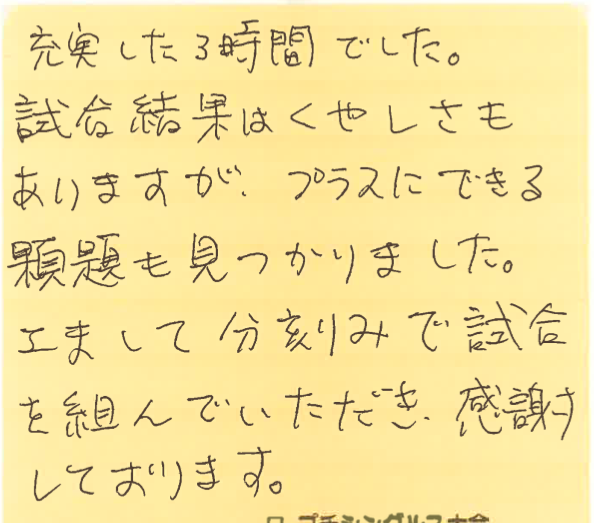 充実した3時間でした。
試合結果はくやしさも
ありますが、プラスにできる
顆題も見つかりました。
エまして分刻みで試合
を組んでいただき、感謝
しております。
プチシングルス大会